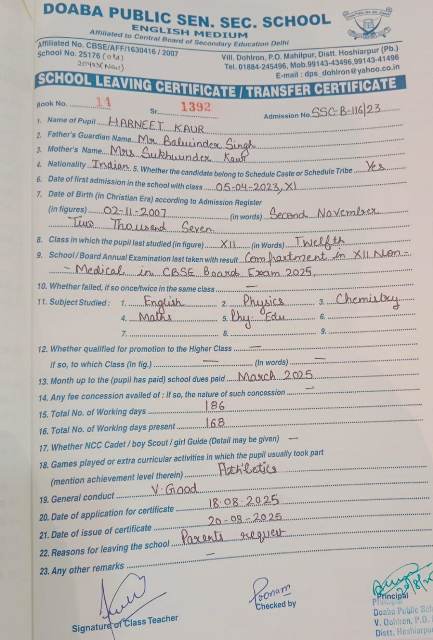 DOABA PUBLIC SEN. SEC. SCHOOL
ENGLISH MEDIUM
Affiliated to Central Board of Secondary Education Delhi
Affiliated No. CBSE/AFF/1630416 / 2007
School No. 25176 (Old)
(New)
Vill. Dohlron, P.O. Mahilpur, Distt. Hoshiarpur (Pb.)
Tel. 01884-245496, Mob.99143-43496,99143-41496
E-mail : dps_dohlron@yahoo.co.in
SCHOOL LEAVING CERTIFICATE / TRANSFER CERTIFICATE
Book No. 14 Sr. 1392 Admission No. SSC-B-116/23
1. Name of Pupil HARNEET KAUR
2. Father's Guardian Name Mr Balwinder Singh
3. Mother's Name Mrs Sukhwinder Kaur
4. Nationality Indian 5. Whether the candidate belong to Schedule Caste or Schedule Tribe Yes
6. Date of first admission in the school with class 05-04-2023, XI
7. Date of Birth (in Christian Era) according to Admission Register
(in figures) 02-11-2007 (in words) Second November
Two Thousand Seven
8. Class in which the pupil last studied (in figure) XII (in Words) Twelfth
9. School / Board Annual Examination last taken with result Compartment in XII Non-
- Medical in CBSE Board Exam 2025
10. Whether failed, if so once/twice in the same class —
11. Subject Studied : 1. English 2. Physics 3. Chemistry
4. Maths 5. Phy Edu 6.
7. 8. 9.
12. Whether qualified for promotion to the Higher Class —
if so, to which Class (in fig.) — (In words) —
13. Month up to the (pupil has paid) school dues paid March 2025
14. Any fee concession availed of : if so, the nature of such concession —
15. Total No. of Working days 186
16. Total No. of Working days present 168
17. Whether NCC Cadet / boy Scout / girl Guide (Detail may be given) —
18. Games played or extra curricular activities in which the pupil usually took part
(mention achievement level therein) Athletics
19. General conduct V. Good
20. Date of application for certificate 18-08-2025
21. Date of issue of certificate 20-08-2025
22. Reasons for leaving the school Parents request
23. Any other remarks —
Signature of Class Teacher
Poonam
Checked by
Principal
Doaba Public
V. Dohlron, P.O.
Distt. Hoshiarpur